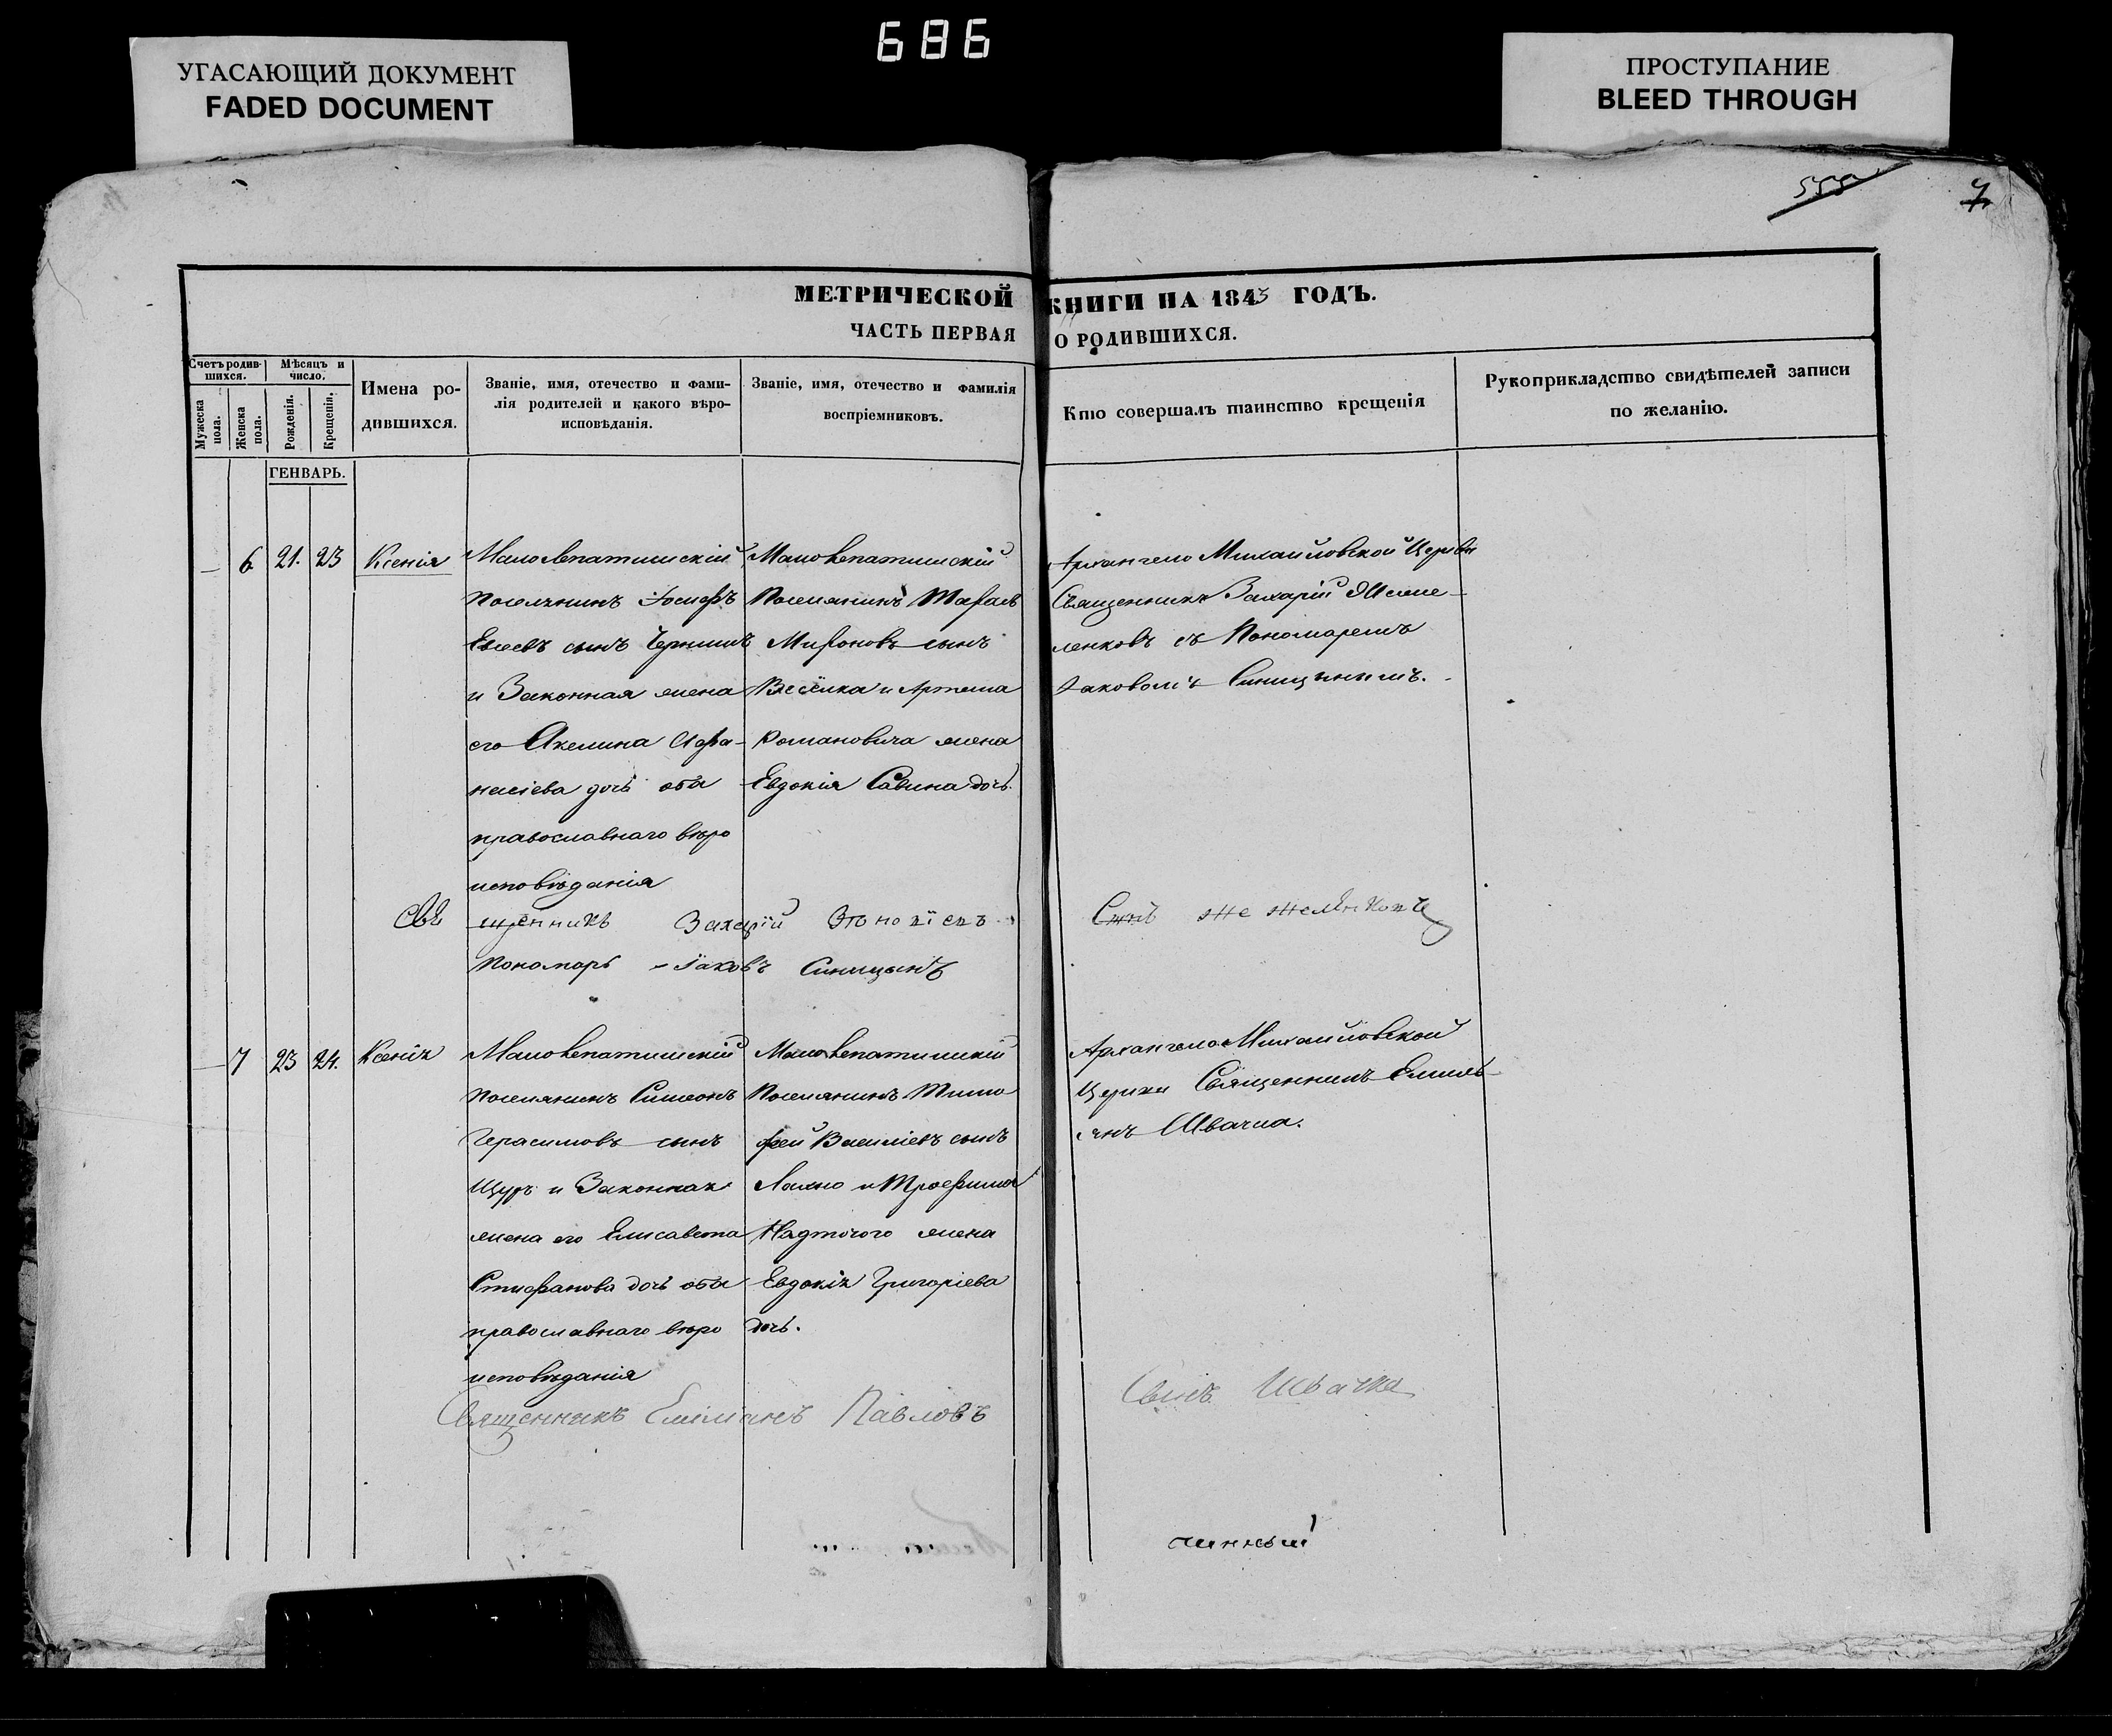 686
УГАСАЮЩИЙ ДОКУМЕНТ
FADED DOCUMENT
ПРОСТУПАНИЕ
BLEED THROUGH
555
7
МЕТРИЧЕСКОЙ КНИГИ НА 1843 ГОДЪ.
ЧАСТЬ ПЕРВАЯ О РОДИВШИХСЯ.
Счетъ родив-
шихся.
Мужеска
пола.
Женска
пола.
Мѣсяцъ и
число.
Рожденія.
Крещенія.
Имена ро-
дившихся.
Званіе, имя, отечество и фами-
лія родителей и какого вѣро-
исповѣданія.
Званіе, имя, отечество и фамилія
воспріемниковъ.
Кто совершалъ таинство крещенія
Рукоприкладство свидѣтелей записи
по желанію.
ГЕНВАРЬ.
— 6 21. 23 Ксенія
поселянинъ Іосифъ
Евсеевъ сынъ
и Законная жена
его Акелина Афа-
насіева дочь оба
православнаго вѣро
исповѣданія
Поселянинъ
Мироновъ сынъ
и Артема
Романовича жена
Евдокія Савина дочь.
Архангело Михайловской Церкви
Священникъ Захарій
ленковъ съ Пономаремъ
Іаковомъ Синицынымъ.
Свя щенникъ Захарій
Пономарь Іаковъ Синицынъ
— 7 23 24. Ксенія
поселянинъ Симеонъ
Герасимовъ сынъ
Щуръ и Законная
жена его Елисавета
Стефанова дочь оба
православнаго вѣро
исповѣданія
Поселянинъ Тимо
фей Василіевъ сынъ
Лахно и Трофима
Надточого жена
Евдокія Григоріева
дочь.
Архангело Михайловской
Церкви Священникъ Емилі-
янъ Швачка.
Священникъ Емиліанъ Павловъ
Сынъ Швачка
чинный